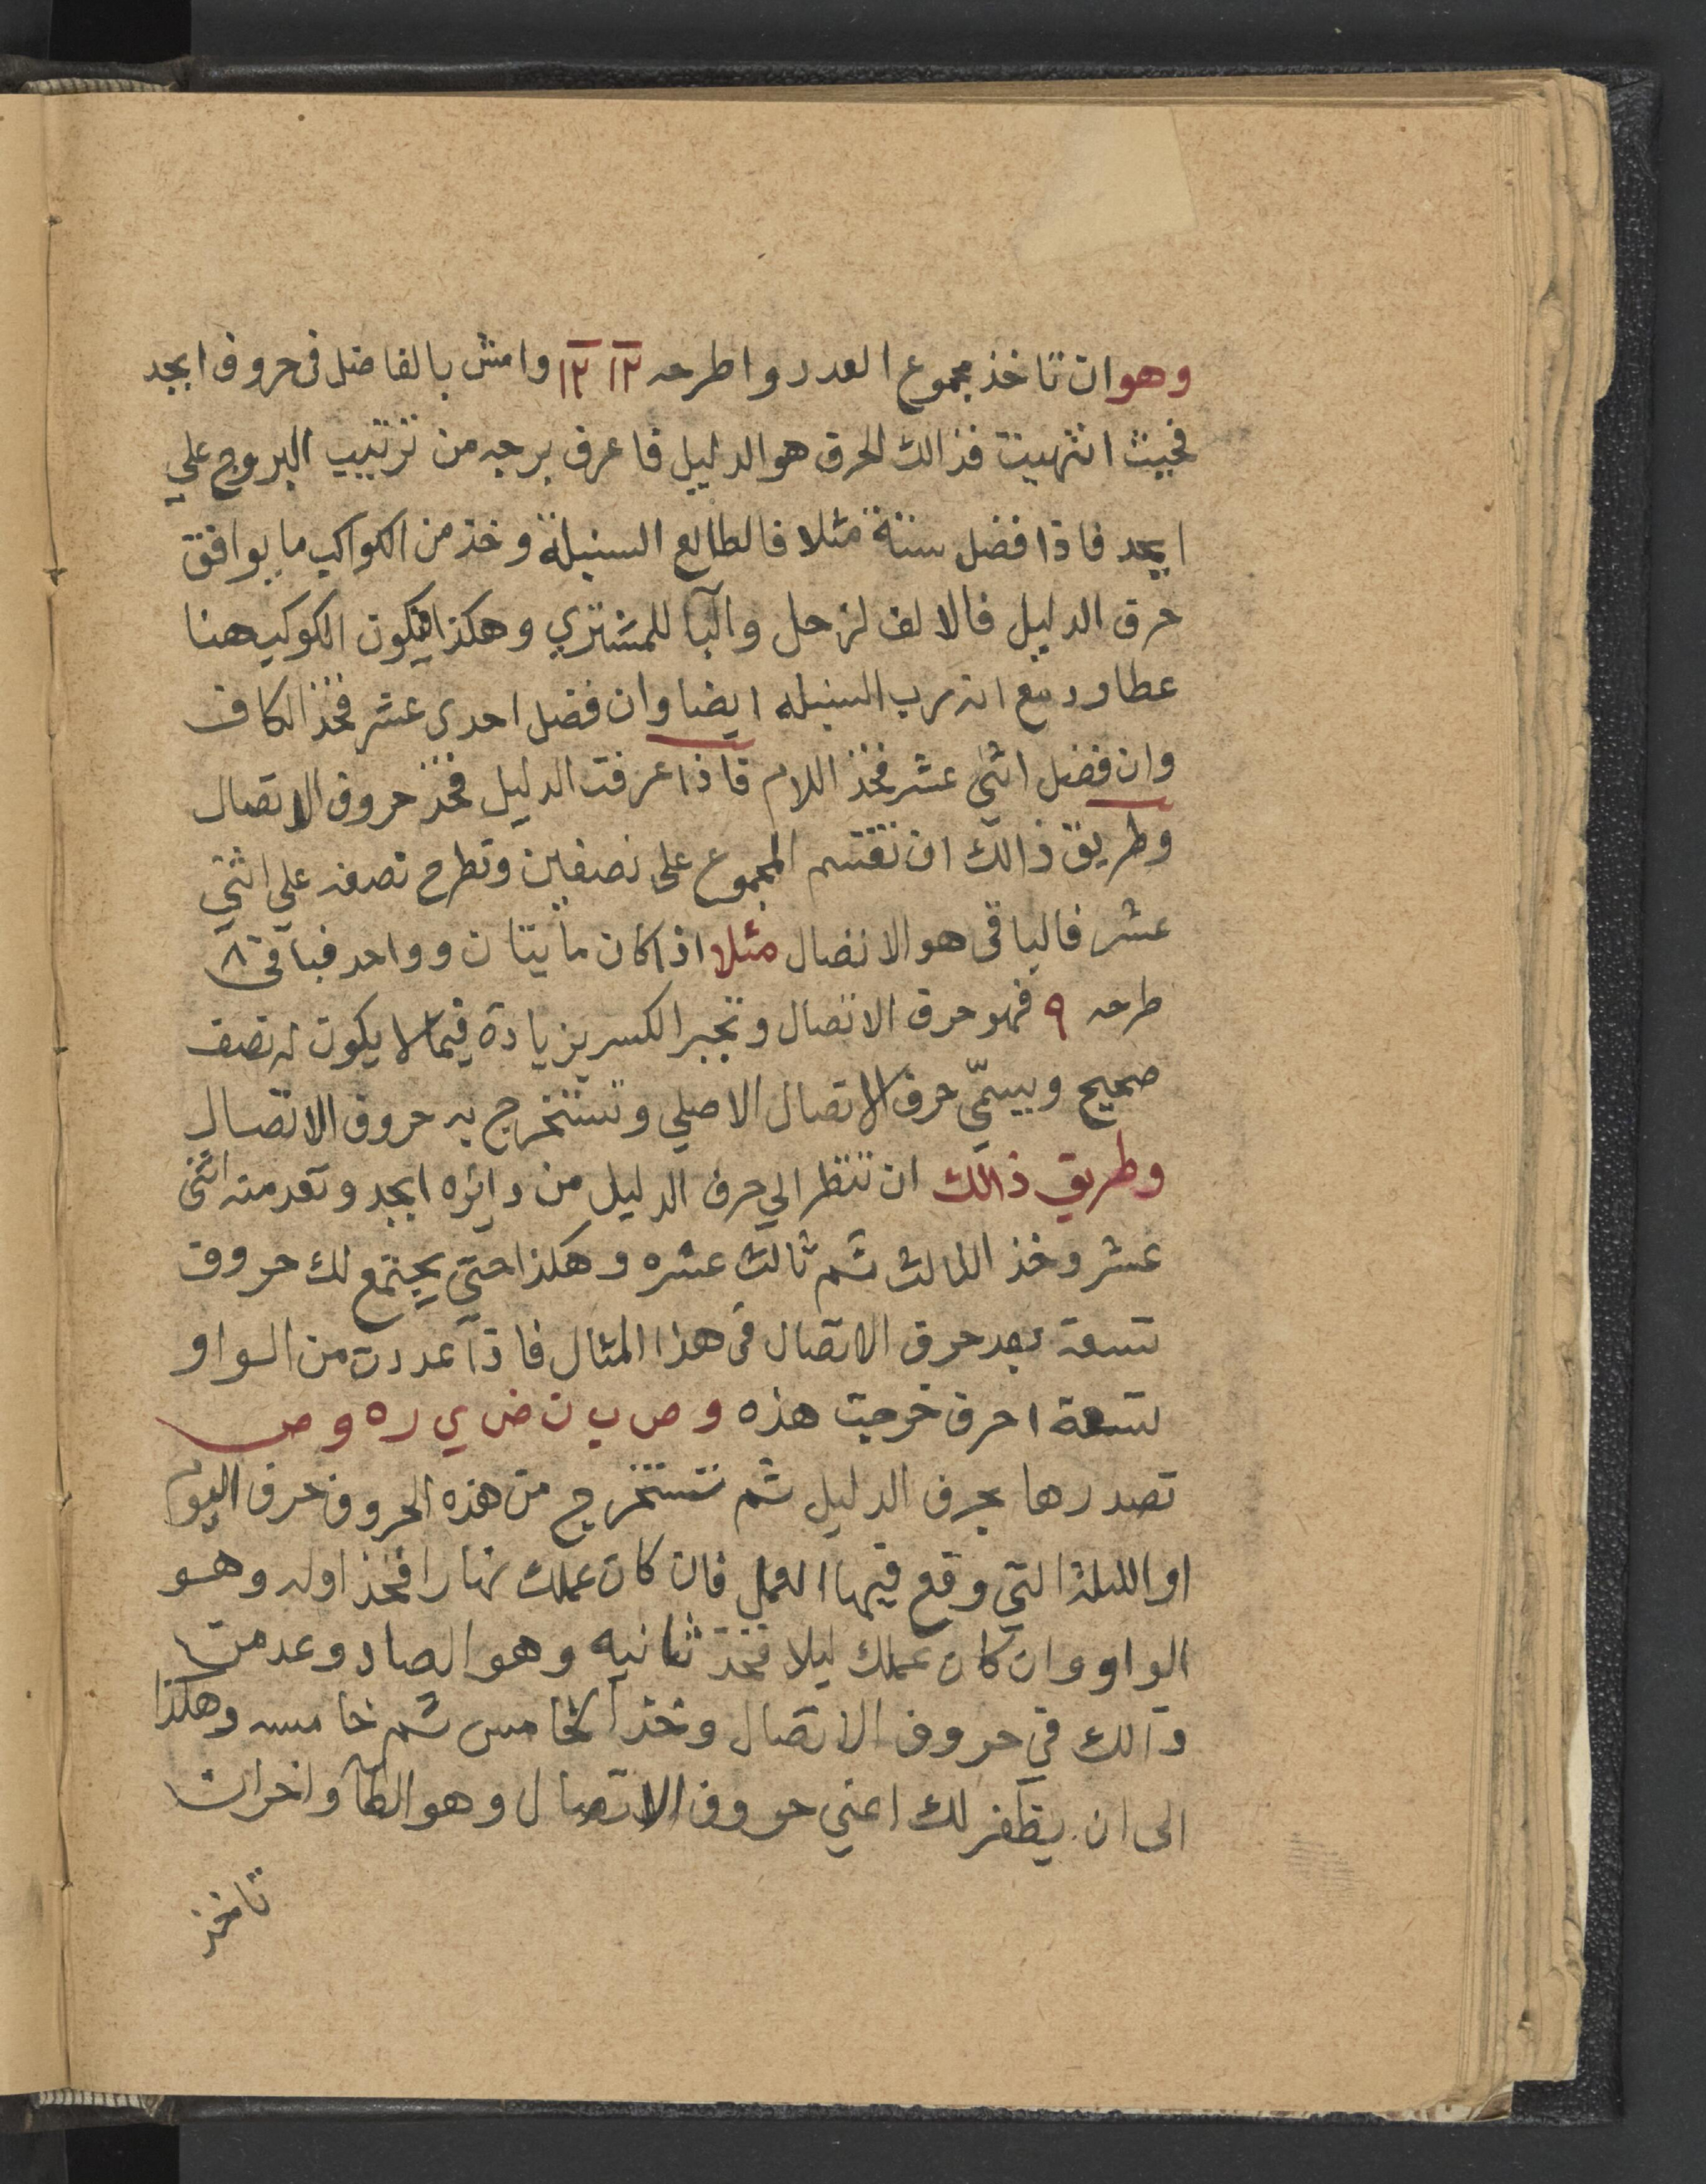 وهو ان تاخذ مجموع العدد واطرحه ١٢ ١٢ وامش بالفاضل فى حروف ابجد
فحيث انتهيت فذالك الحرف هو الدليل فاعرف برجه من ترتيب البروج علي
ابجد فاذا فضل ستة مثلا فالطالع السنبلة وخذ من الكواكب ما يوافق
حرف الدليل فالالف لزحل والبا للمشتري وهكذا فيكون الكوكب هنا
عطارد مع انه رب السنبله ايضا وان فضل احدى عشر فخذ الكاف
وان فضل اثنى عشر فخذ اللام فاذا عرفت الدليل فخذ حروف الاتصال
وطريق ذالك ان تقتسم المجموع على نصفين وتطرح نصفه علي اثني
عشر فالباقى هو الاتصال مثلا اذا كان مأيتان وواحد فباقى
طرحه ٩ فهو حرف الاتصال وتجبر الكسر بزيادة فيما لا يكون له نصف
صحيح ويسمّي حرف الاتصال الاصلي وتستخرج به حروف الاتصال
وطريق ذالك ان تنظر الي حرف الدليل من دايره ابجد وتعد منه اثنى
عشر وخذ الثالث ثم ثالث عشره وهكذا حتي يجتمع لك حروف
تسعة بعد حرف الاتصال فى هذا المثال فاذا عددت من الواو
تسعة احرف خرجت هذه و ص ب ن ض ي ر ه و ص
تصدرها بحرف الدليل ثم تستخرج من هذه الحروف حرف اليوم
او الليلة التي وقع فيها العمل فان كان عملك نهارا فخذ اوله وهو
الواو وان كان عملك ليلا فخذ ثانيه وهو الصاد وعد من
ذالك في حروف الاتصال وخذ الخامس ثم خامسه وهكذا
الى ان يظفر لك اعني حروف الاتصال وهو الطا واخران
تاخذ